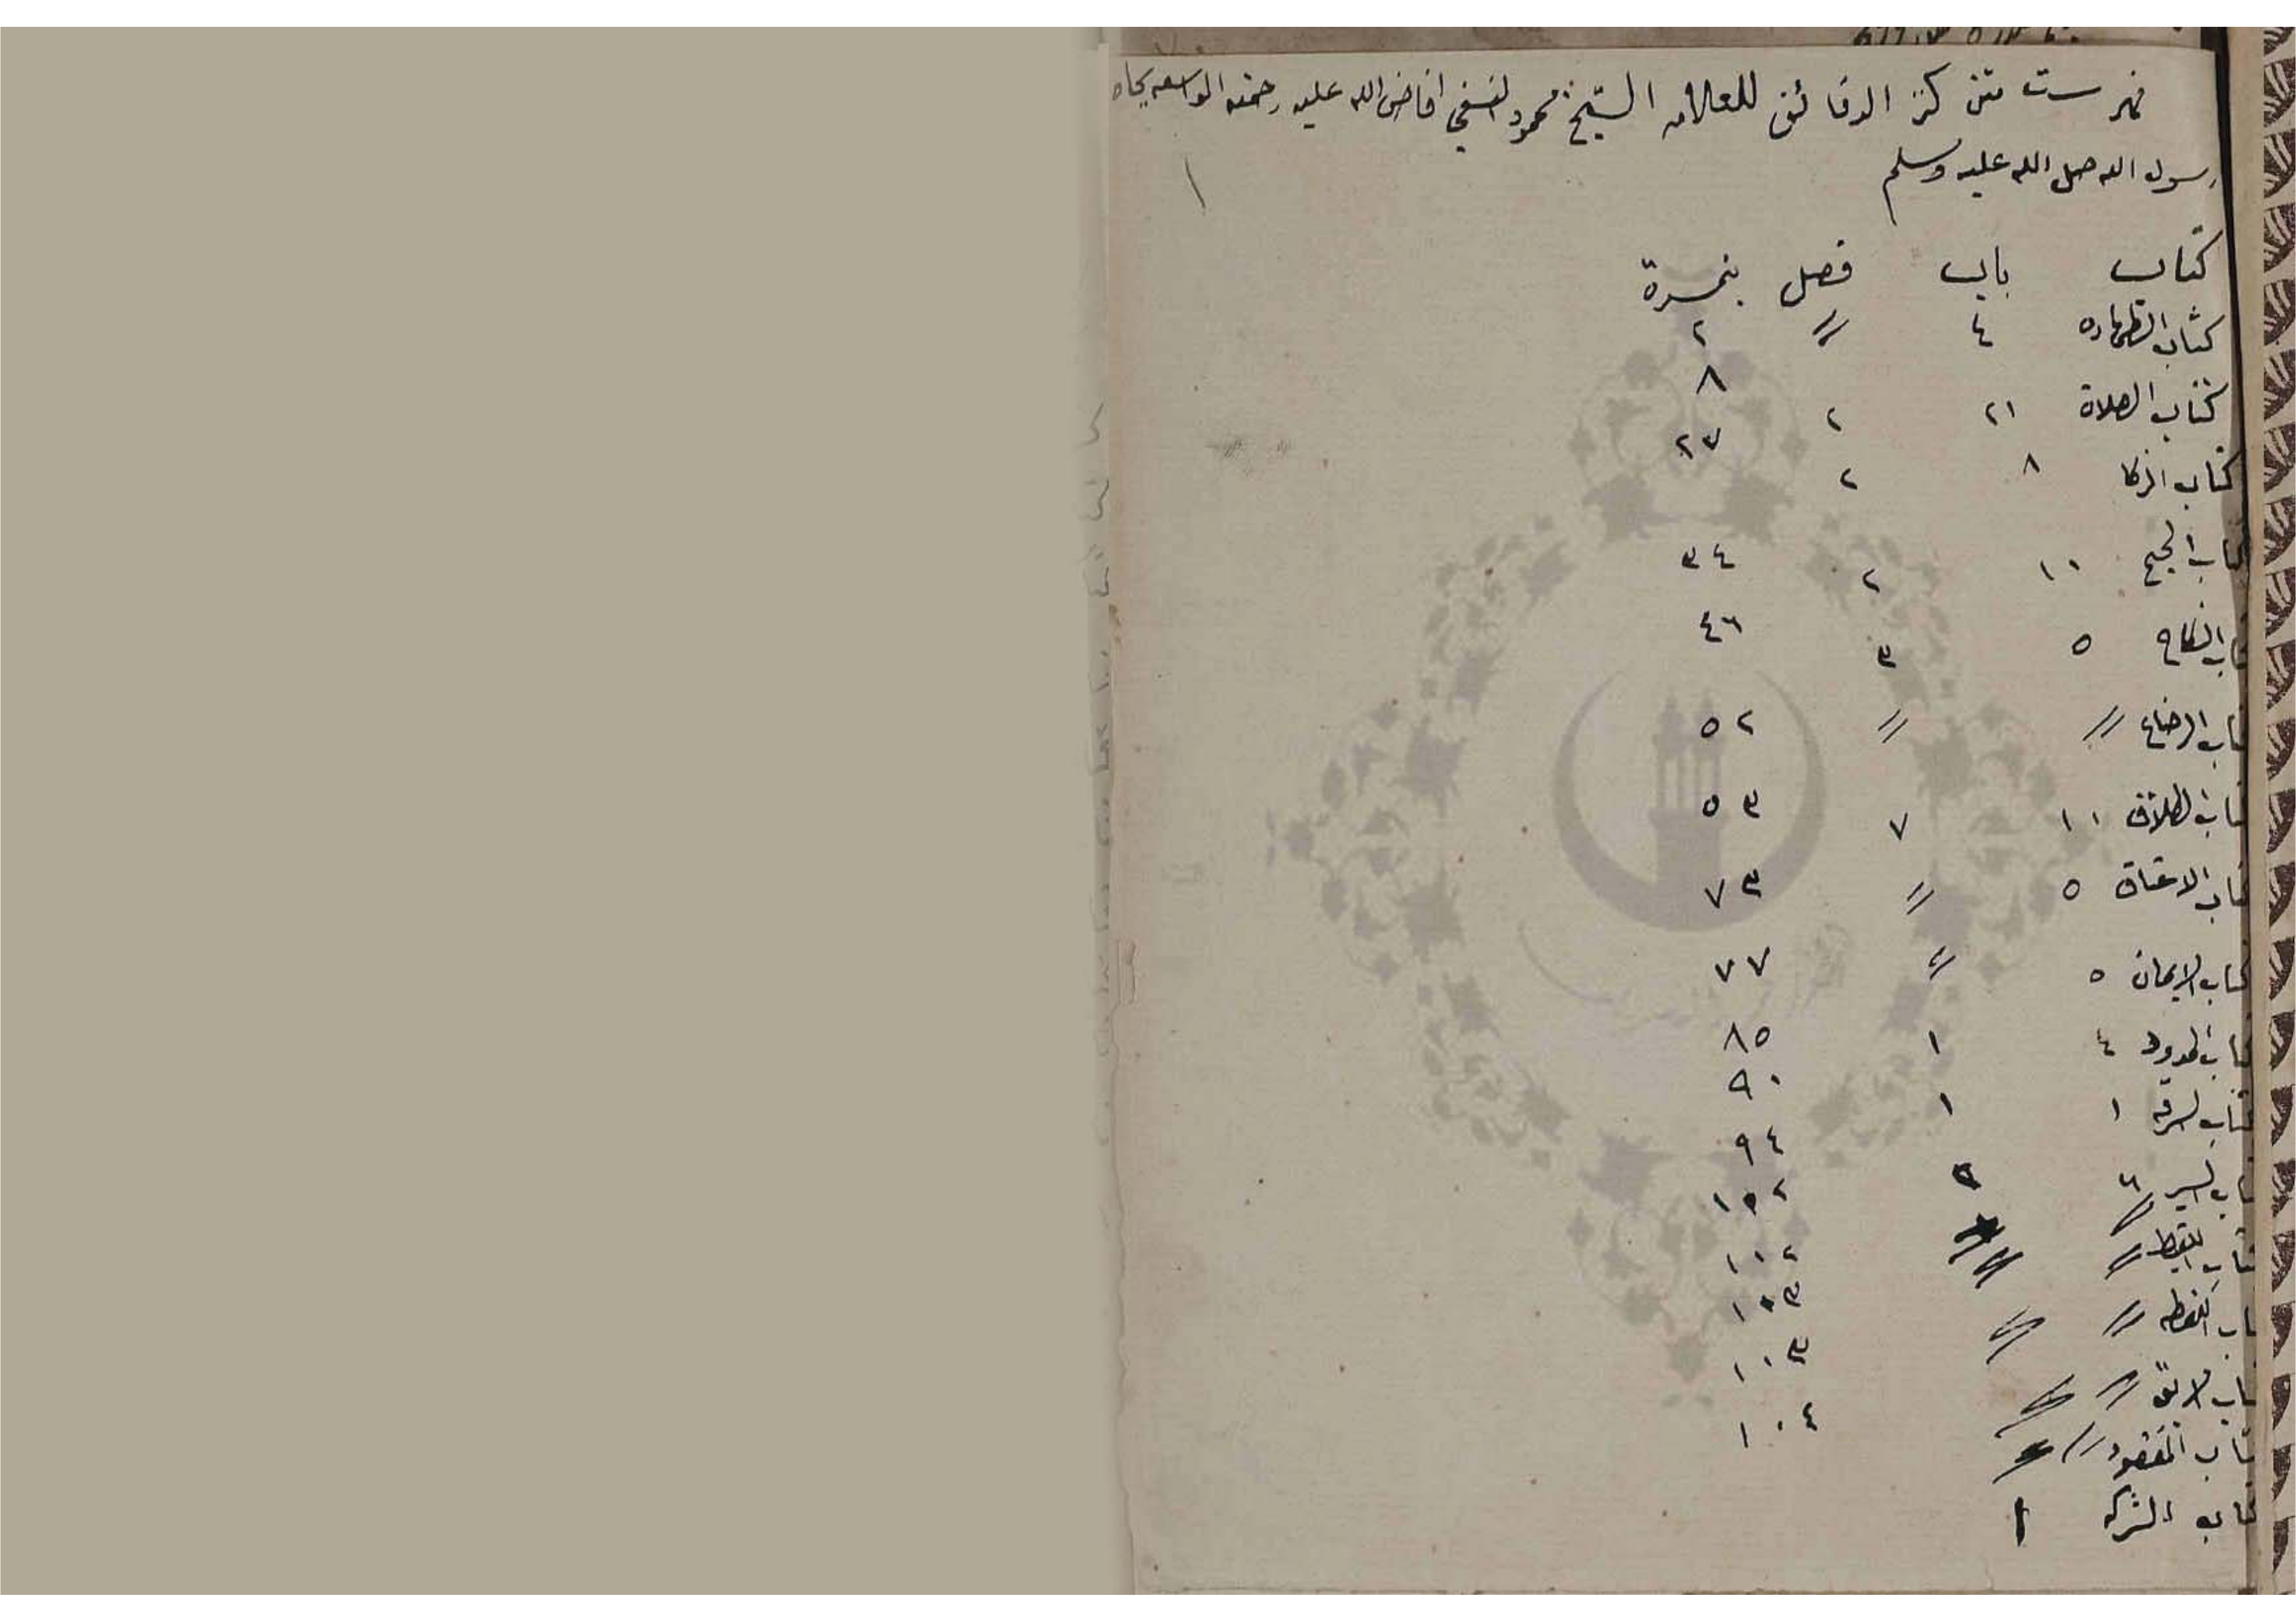 فهرست متن كنز الدقائق للعلامه الشيخ محمود النسفي افاض الله عليه رحمته الواسعه بجاه
رسول الله صلى الله عليه وسلم
١
كتاب باب فصل بنمرة
كتاب الطهاره ٤ // ٢
كتاب الصلاة ٢١ ٢ ٨
كتاب الزكا ٨ ٢ ٢٧
كتاب الحج ١١ ٢ ٣٤
كتاب النكاح ٥ ٣ ٤٦
كتاب الرضاع // // ٥٢
كتاب الطلاق ١١ ٧ ٥٣
كتاب الاعتاق ٥ // ٧٣
كتاب الايمان ٥ // ٧٧
كتاب الحدود ٤ ١ ٨٥
كتاب السرقه ١ ١ ٩٠
كتاب السير ٦ ٩٤
كتاب اللقيط // // ١٠٢
كتاب اللقطه // // ١٠٢
كتاب الابق // // ١٠٣
كتاب المفقود // ١٠٣
كتاب الشركه ١ ١٠٤